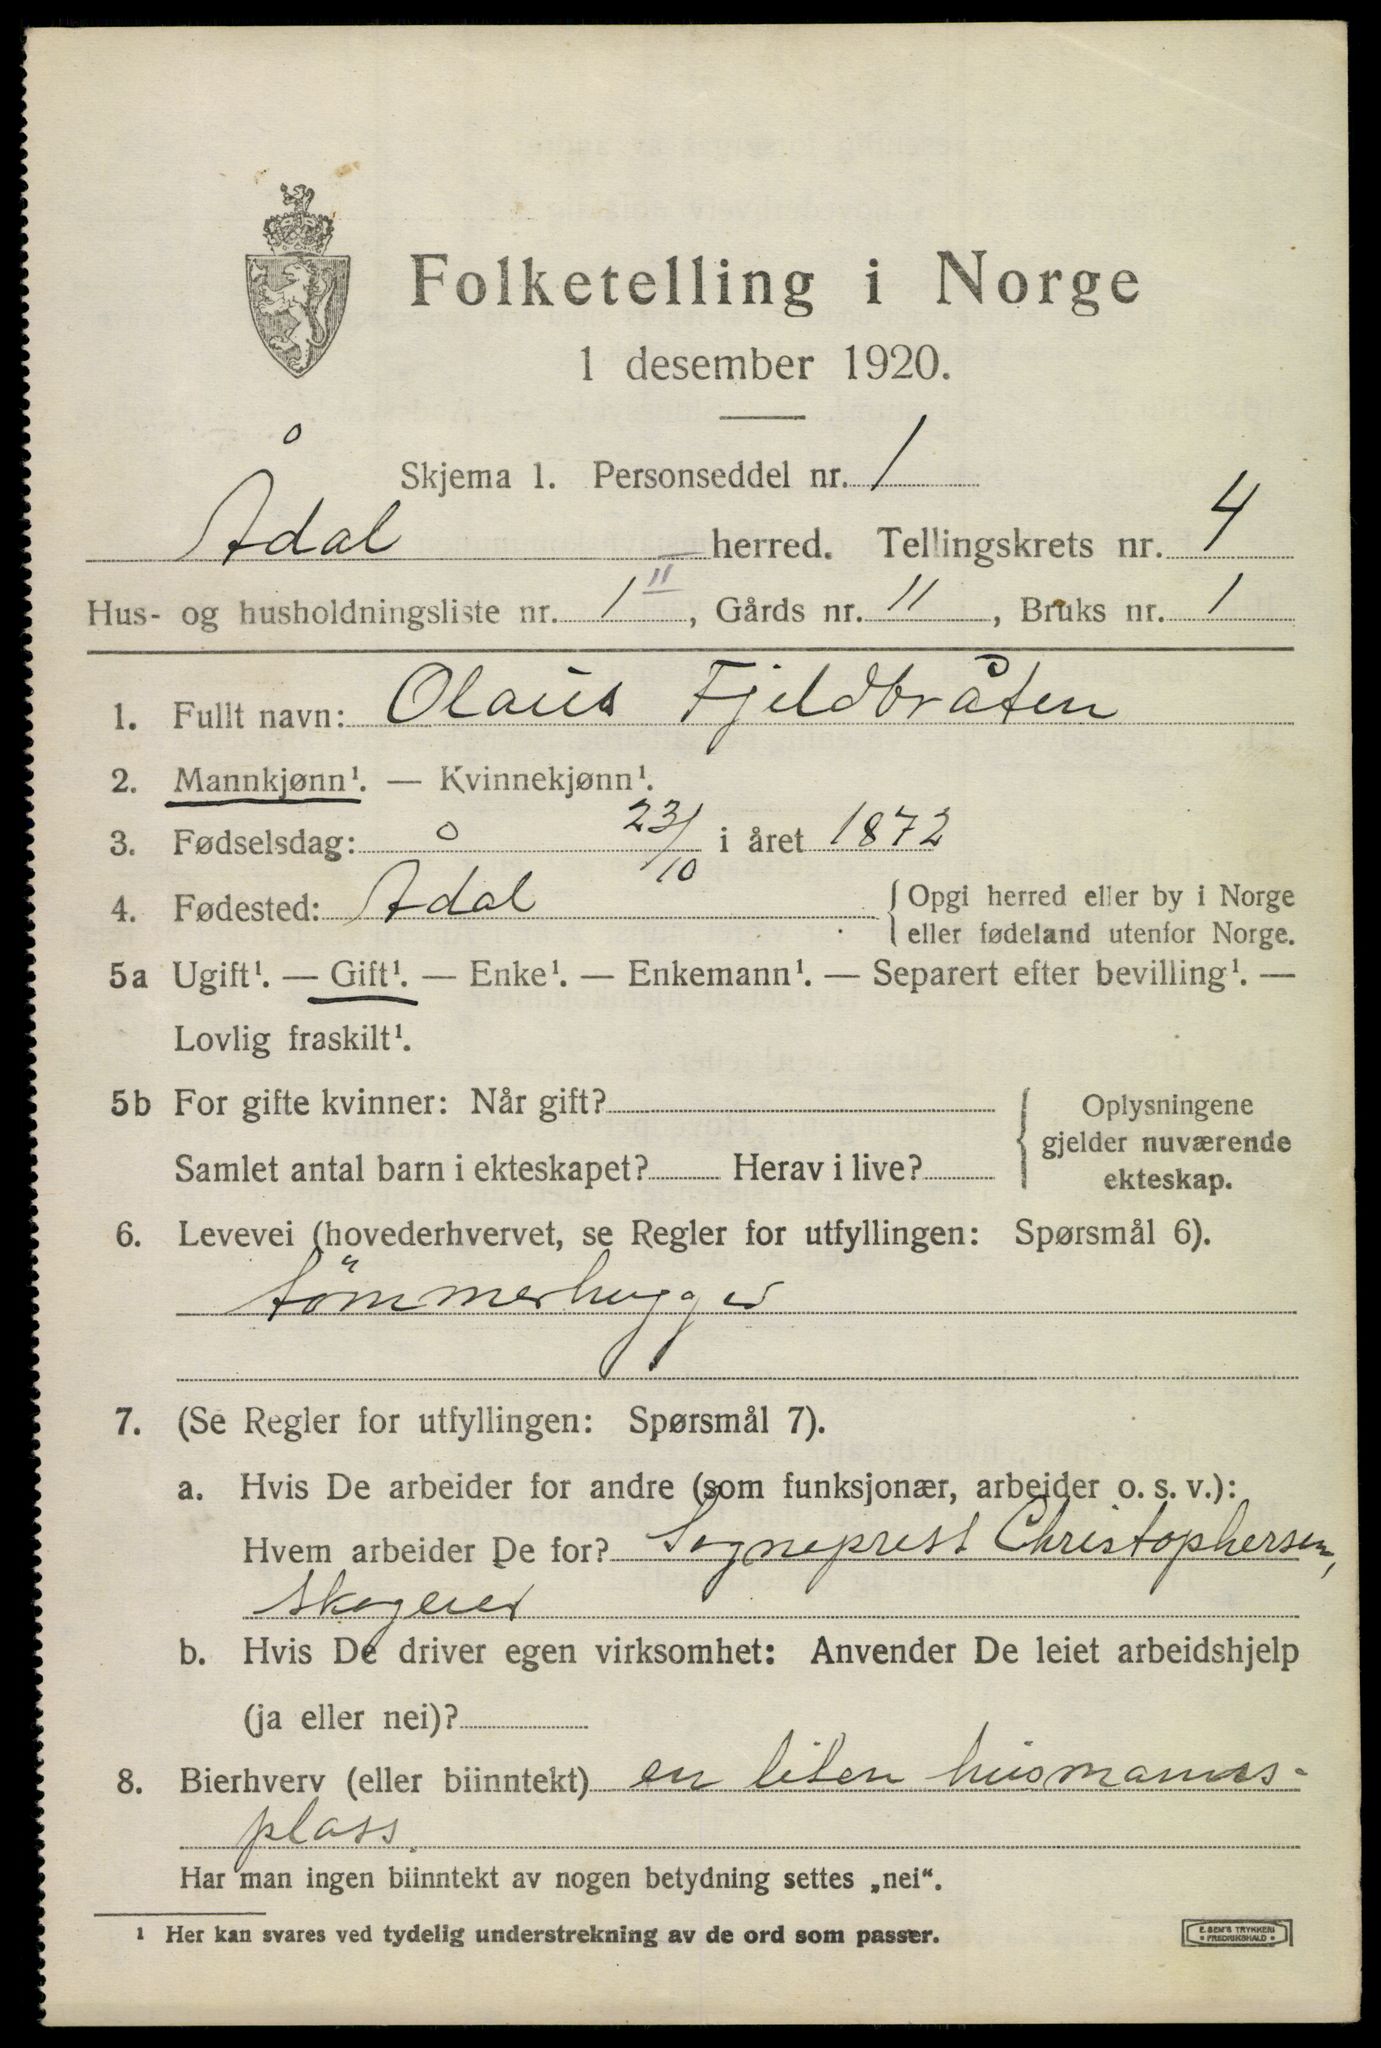 Folketelling i Norge
1 desember 1920.
Skjema 1. Personseddel nr. 1
Ådal herred. Tellingskrets nr. 4
Hus- og husholdningsliste nr. 1 II, Gårds nr. 11, Bruks nr. 1
1. Fullt navn: Olaus Fjeldbråten
2. Mannkjønn¹. — Kvinnekjønn¹.
3. Fødselsdag: 23/10 i året 1872
4. Fødested: Ådal {Opgi herred eller by i Norge
eller fødeland utenfor Norge.
5a Ugift¹. — Gift¹. — Enke¹. — Enkemann¹. — Separert efter bevilling¹. —
Lovlig fraskilt¹.
5b For gifte kvinner: Når gift? { Oplysningene
gjelder nuværende
ekteskap.
Samlet antal barn i ekteskapet? Herav i live?
6. Levevei (hovederhvervet, se Regler for utfyllingen: Spørsmål 6).
tömmerhugger
7. (Se Regler for utfyllingen: Spørsmål 7).
a. Hvis De arbeider for andre (som funksjonær, arbeider o. s. v.):
Hvem arbeider De for? Sogneprest Christophersen,
skogeier
b. Hvis De driver egen virksomhet: Anvender De leiet arbeidshjelp
(ja eller nei)?
8. Bierhverv (eller biinntekt) en liten husmanns-
plass
Har man ingen biinntekt av nogen betydning settes „nei“.
¹ Her kan svares ved tydelig understrekning av de ord som passer.
E. SEM'S TRYKKERI
FREDRIKSHALD